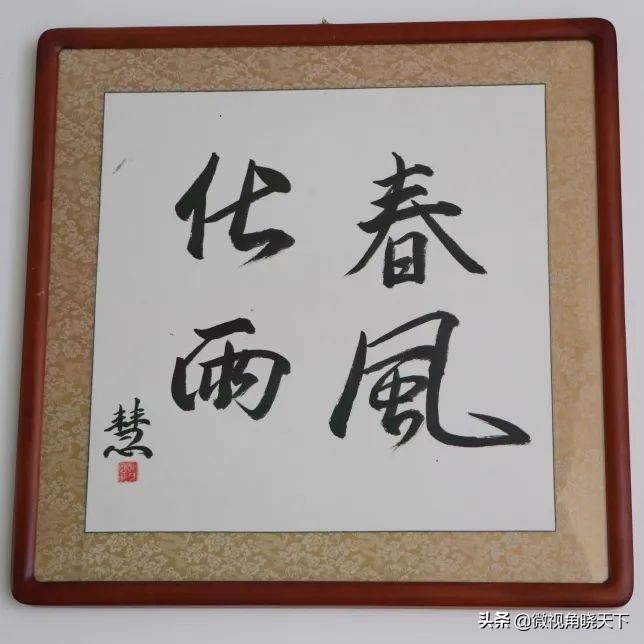 春風
化雨
慧
头条 @微视角晓天下